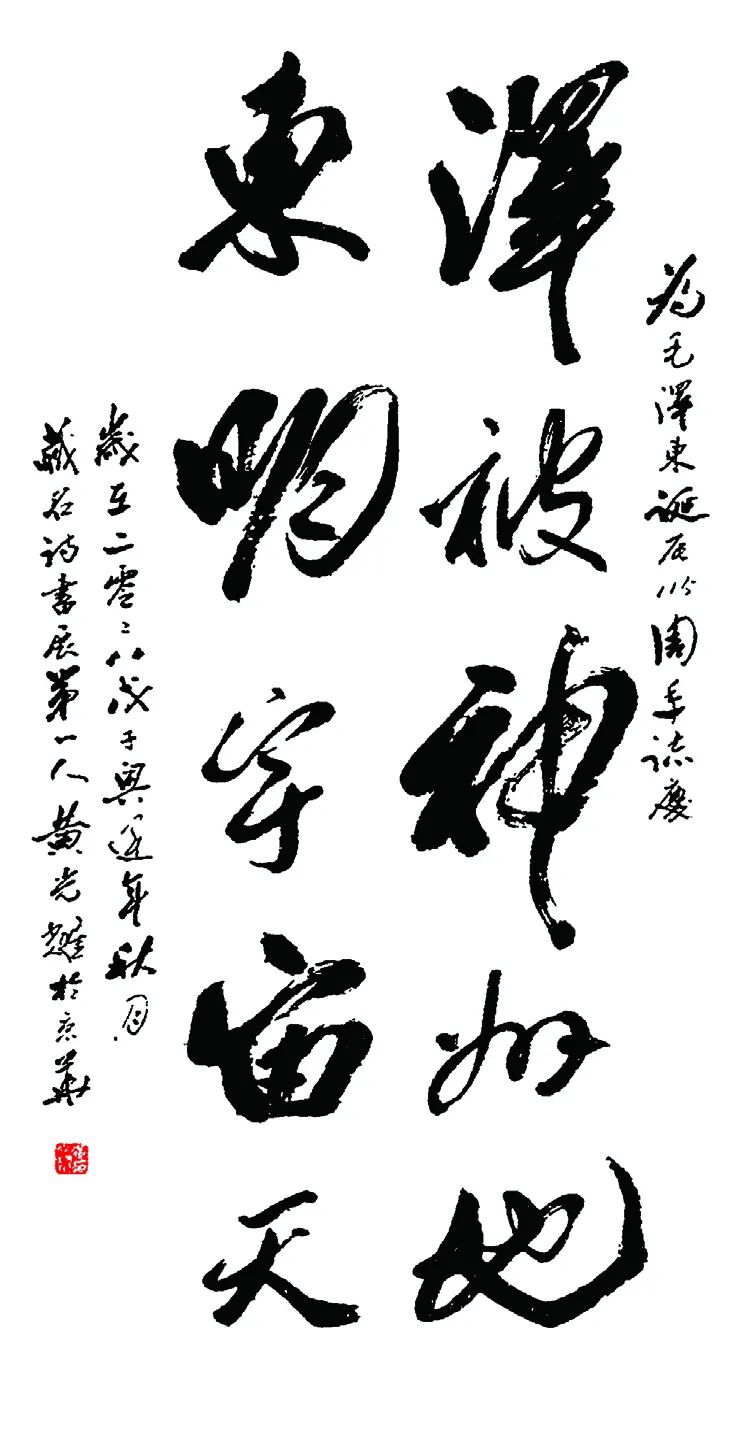 为毛澤東誕辰115周年誌慶
澤被神州地
東明宇宙天
歲在二零零八戊子奥运年秋月
藏名诗書展第一人黄光耀於京華